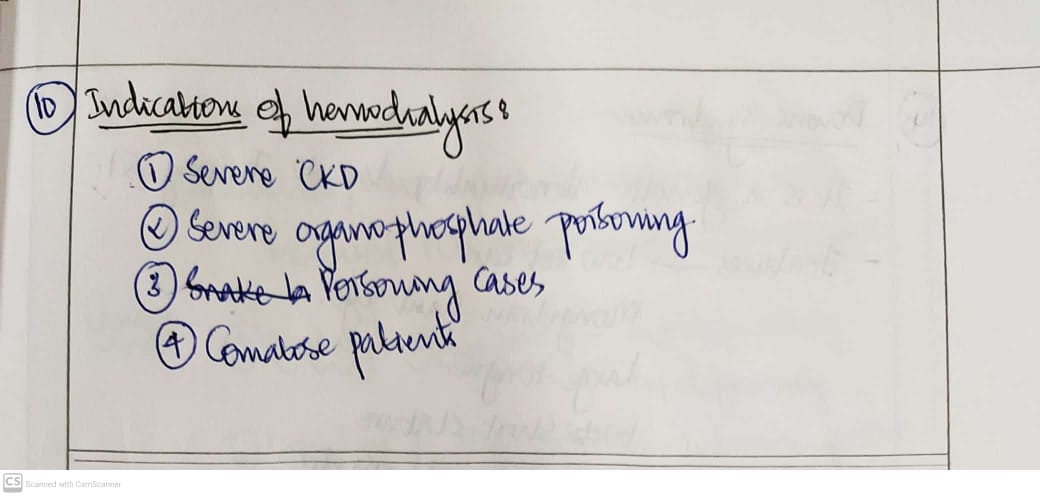 10 Indications of hemodialysis:
1 Severe CKD
2 Severe organophosphate poisoning
3 Snake b Poisoning Cases
4 Comatose patients
CS Scanned with CamScanner